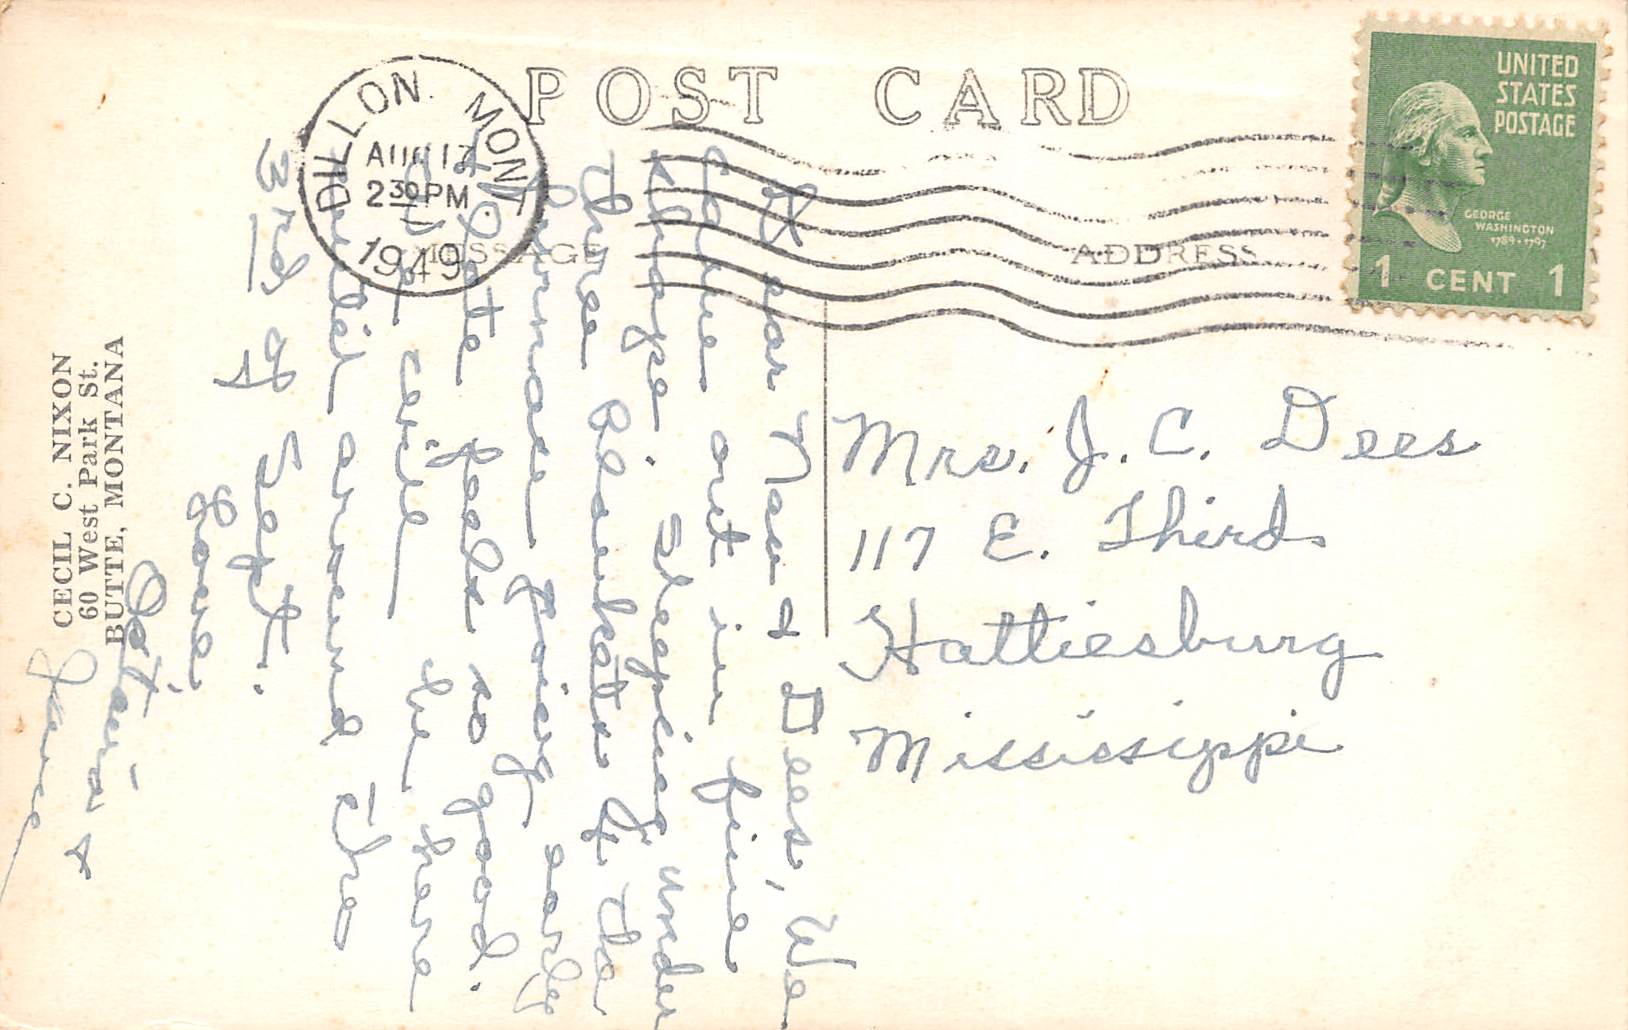 POST CARD
DILLON MONT.
AUG 17
2 30 PM
1949
MESSAGE
ADDRESS
UNITED
STATES
POSTAGE
GEORGE
WASHINGTON
1789-1797
1 CENT 1
Mrs. J. C. Dees
117 E. Third
Hattiesburg
Mississippi
Dear Nan & Dees, We
came out in fine
shape. Sleeping under
three blankets & the
furnace going early
& late feels so good.
will be here
until around the
3rd of Sept.
Love,
Octavia &
Jane
CECIL C. NIXON
60 West Park St.
BUTTE, MONTANA